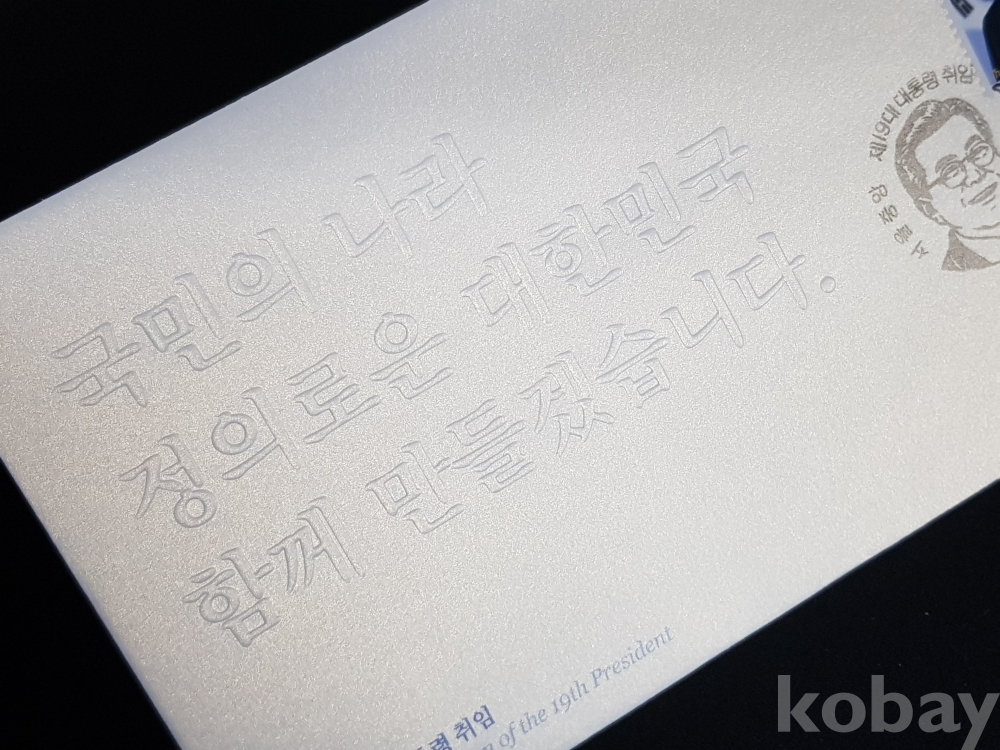 국민의 나라
정의로운 대한민국
함께 만들겠습니다.
제19대 대통령 취임
서울중앙
취임
of the 19th President
kobay